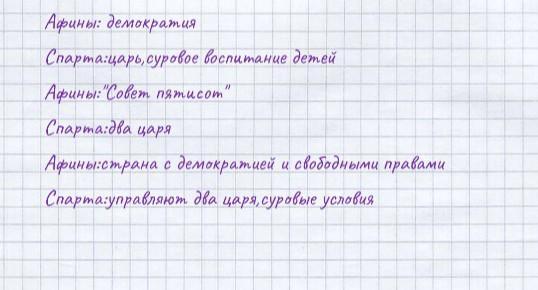 Афины: демократия
Спарта:царь,суровое воспитание детей
Афины:"Совет пятисот"
Спарта:два царя
Афины:страна с демократией и свободными правами
Спарта:управляют два царя,суровые условия